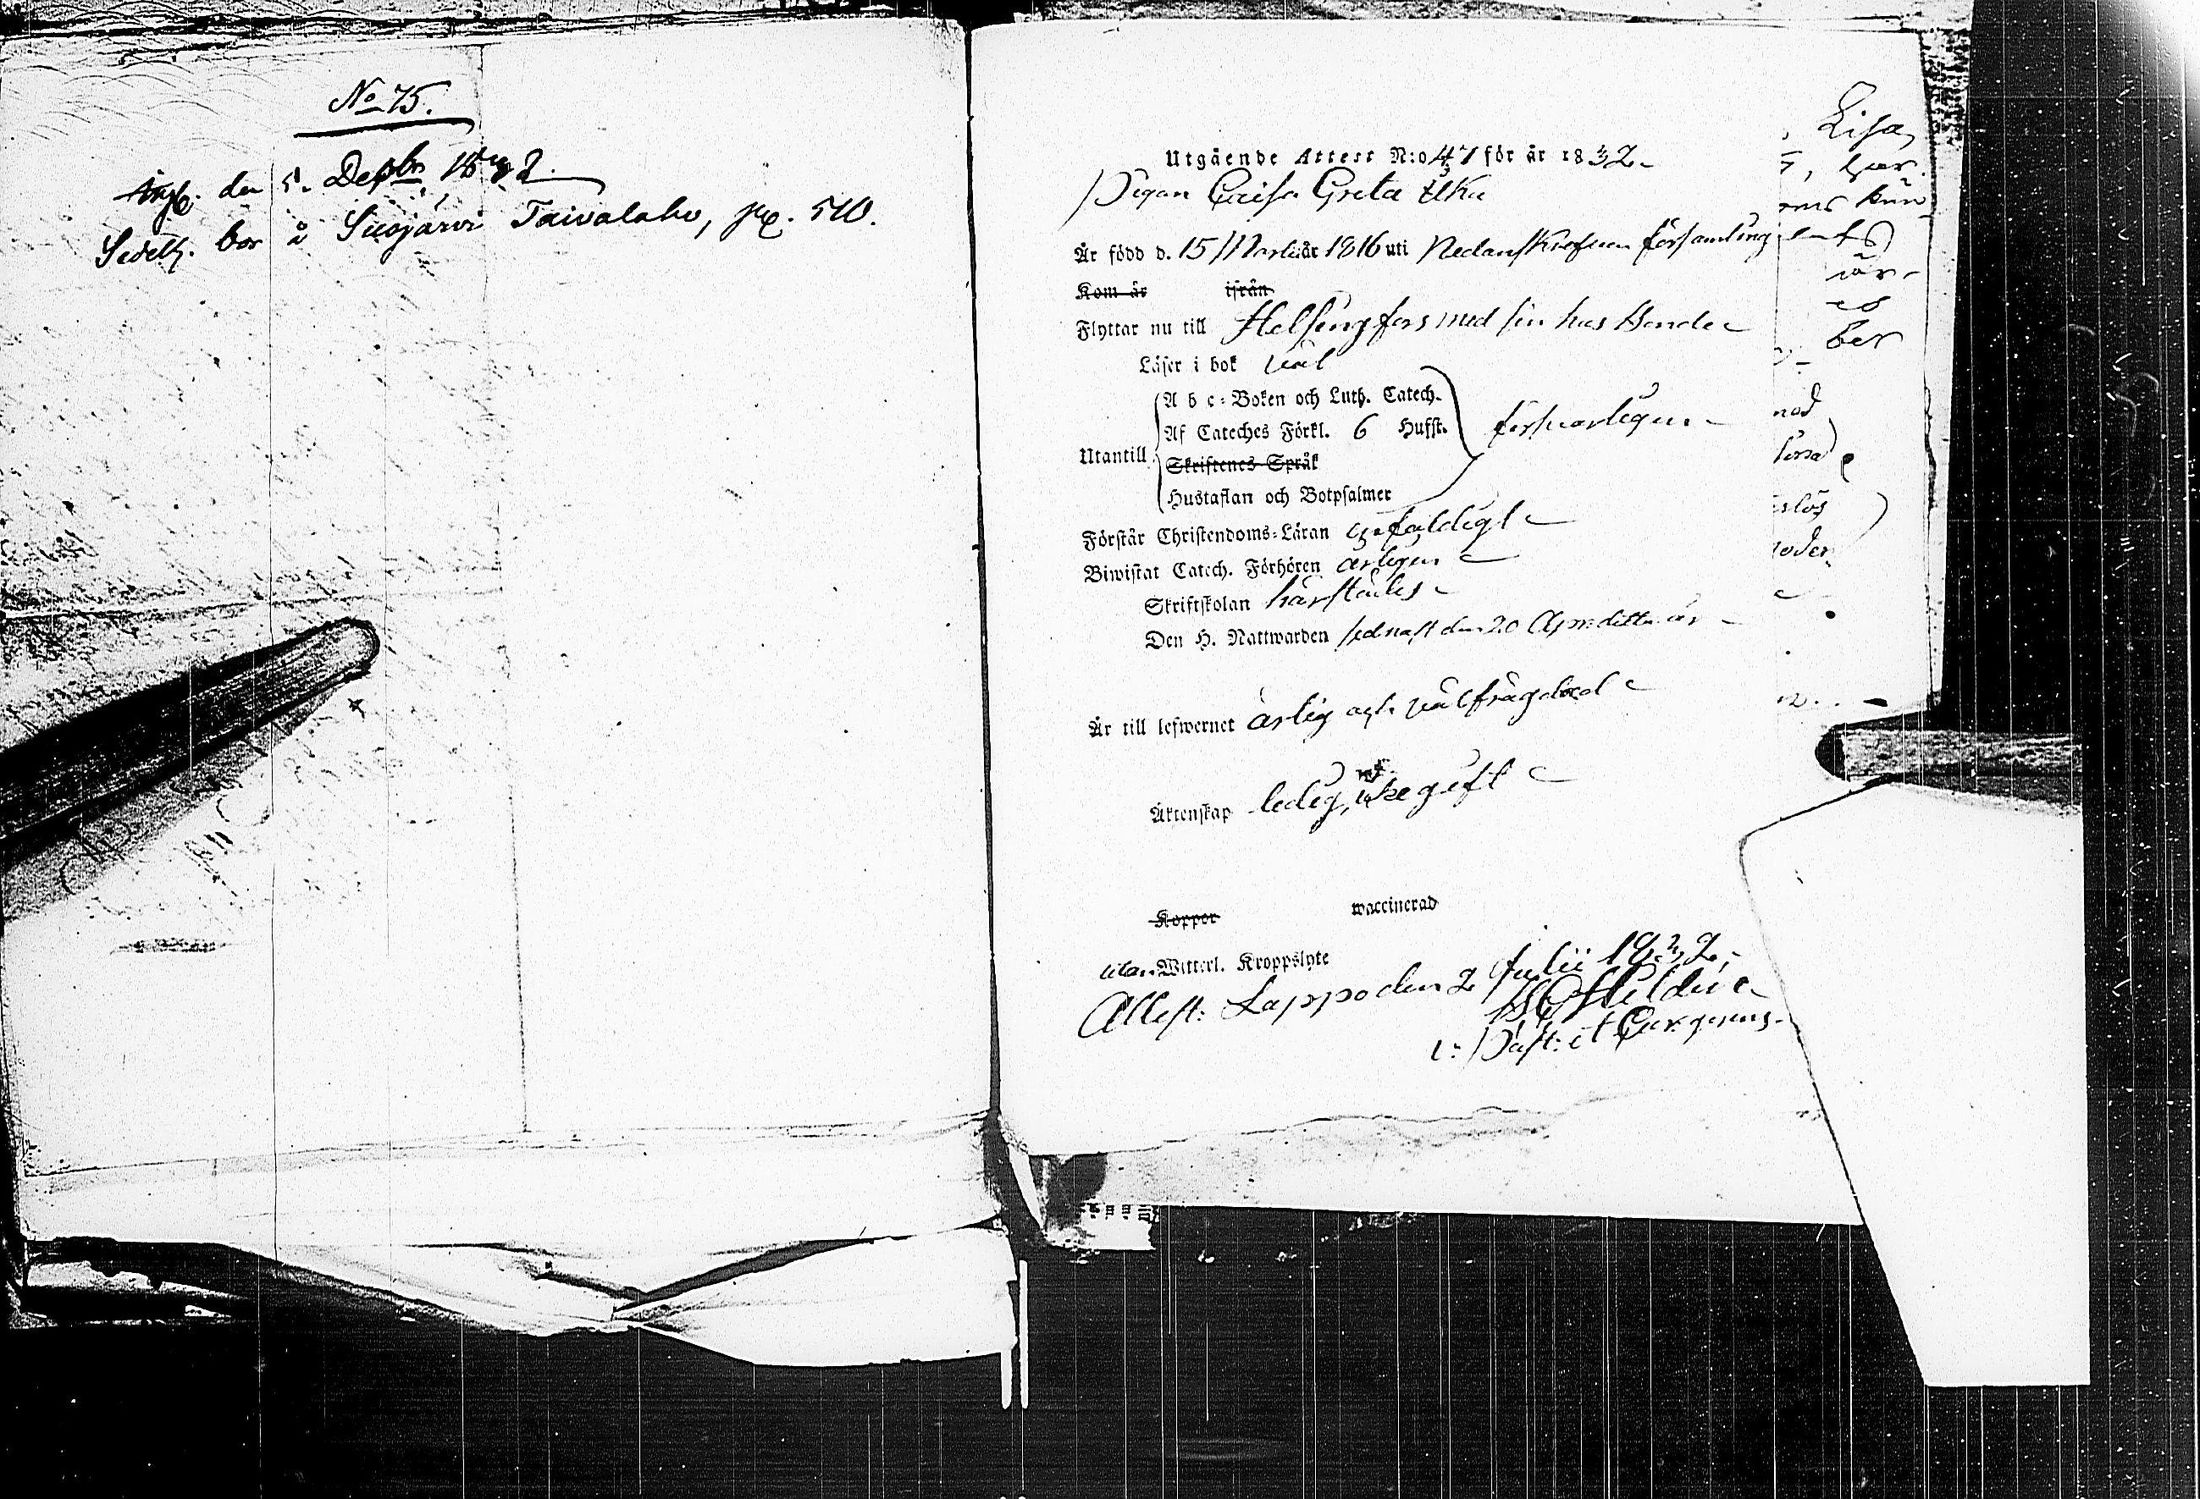 No 75.
Angl. den 5. Decbr 1832.
Sedelh. bor i Suojärvi Taivalaho, pg. 510.
Utgående Attest N:o 47 för år 1832
Pigan Caisa Greta Ilku
Är född d. 15 Martii år 1816 uti församling
Kom år ifrån
Flyttar nu till Helsingfors med sin hus bonde
Läser i bok väl
A b c-Boken och Luth. Catech.
Af Cateches Förkl. 6 Hufst. försvarligen
Utantill
Skriftenes Språk
Hustaflan och Botpsalmer
Förstår Christendoms-Läran enfaldigt
Biwistat Catech. Förhören årligen
Skriftskolan härstädes
Den H. Nattwarden sednast den 20 Apr. detta år
Är till lefwernet ärlig och välfrägdad
Äktenskap ledig, icke gift
Koppor waccinerad
utan Witterl. Kroppslyte
Attest: Lappo den 2 Julii 1832
v: Past: et
Lisa,
ber
nad
lös